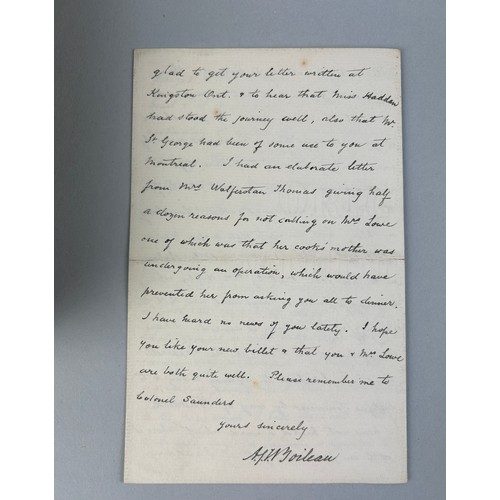 glad to get your letter written at
Kingston Ont. & to hear that Miss Haddan
had stood the journey well, also that Mr.
St George had been of some use to you at
Montreal. I had an elaborate letter
from Mrs Walferstan Thomas giving half
a dozen reasons for not calling on Mrs Lowe
one of which was that her cook's mother was
undergoing an operation, which would have
prevented her from asking you all to dinner.
I have heard no news of you lately. I hope
you like your new billet & that you & Mrs Lowe
are both quite well. Please remember me to
Colonel Saunders
Yours sincerely
Boileau